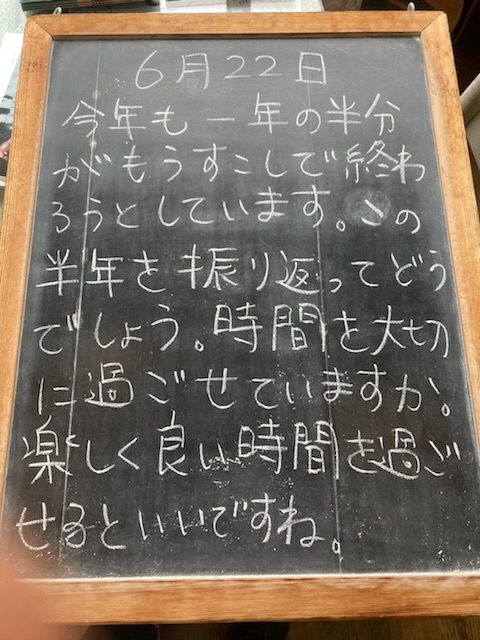 6月22日
今年も一年の半分
がもうすこしで終わ
ろうとしています。この
半年を振り返ってどう
でしょう。時間を大切
に過ごせていますか。
楽しく良い時間を過ご
せるといいですね。